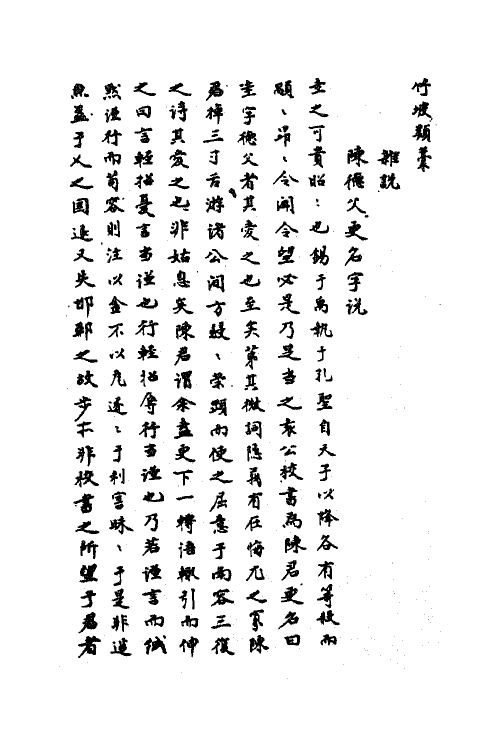 竹坡類藁
雜說
陳德父更名字說
圭之可貴昭〻也錫于禹執于孔聖自天子以降各有等殺而
顒〻昂〻令聞令望必是乃足當之袁公校書為陳君更名曰
圭字德父者其愛之也至矣第其微詞隱寓有在悔尤之累陳
君掉三寸舌游諸公間方鼓〻榮顯而使之屈意于南容三復
之詩其愛之也非姑息矣陳君謂余盍更下一轉語輙引而伸
之曰言輕招憂言當謹也行輕招辱行當謹也乃若謹言而緘
黙謹行而苟容則注以金不以瓦逐〻于利害昧〻于是非道
無益于乂之國追又失邯鄲之故步本非校書之所望于君者